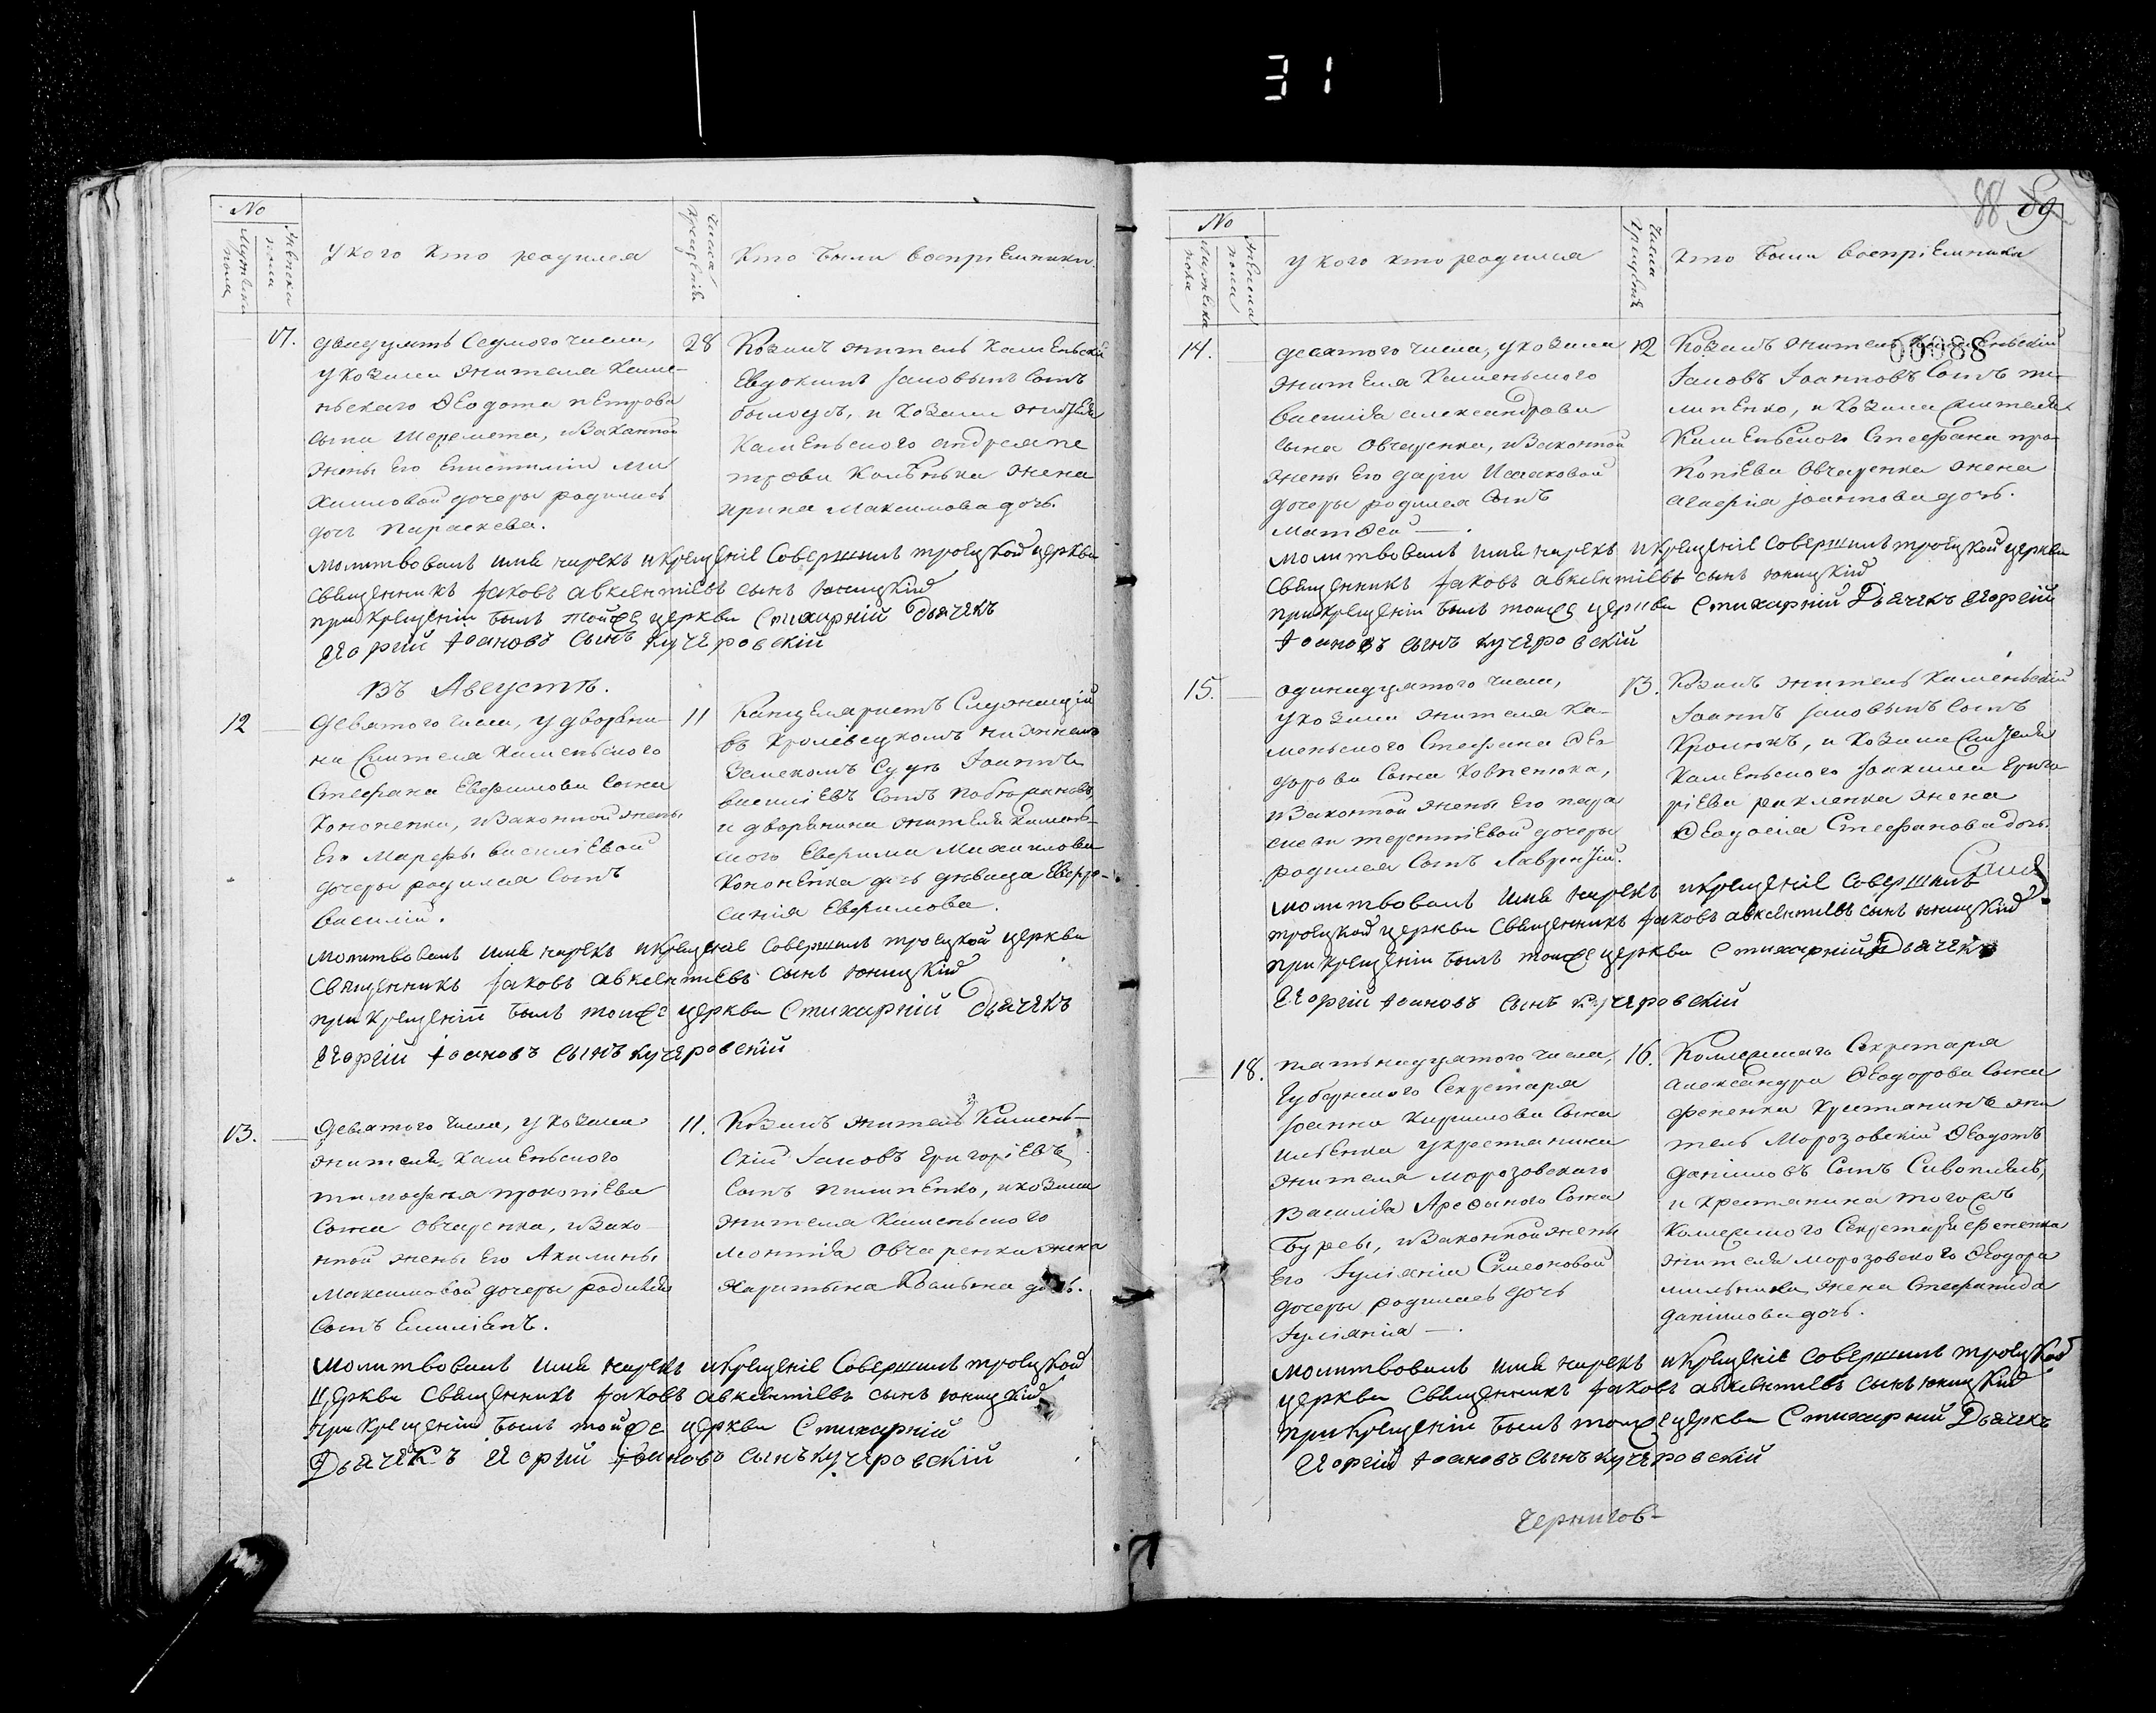 31
№
Мужеска пола
Женска пола
У кого кто родился
Числа крещенія
Кто были воспріемники.
17.
двадцять седмого числа,
у козака жителя Каме-
ньскаго Ѳеодота Петрова
сына Шеремета, и законной
жены его Епистиміи Ми
хаиловой дочеры родилась
дочь Параскева.
28
Козакъ житель Каменьскій
Евдокимъ Іаковъ сынъ
и козака жителя
Каменьского Андрея Пе
трова жена
Ирина Максимова дочь.
Молитвовалъ имя нарекъ и крещеніе совершилъ троецкой церкви
священникъ Іаковъ Авксентіевъ сынъ Юницкій
при крещеніи былъ тойже церкви стихарній дьячекъ
Георгий Іоановъ сынъ Кучеровскій
Въ Августѣ.
12
девятого числа, у дворяни-
на жителя Каменьского
Стефана Евфимова сына
Кононенка, и законной жены
его Марфы Василіевой
дочеры родился сынъ
Василій.
11
Канцеляристъ служащій
въ Кролевецкомъ нижнемъ
земскомъ суде Іоаннъ
Василіевъ сынъ
и дворянина жителя Камень-
ского Евфима Михайлова
Кононенка дочь девица Евфро-
синія Евфимова.
Молитвовалъ имя нарекъ и крещеніе совершилъ троецкой церкви
священникъ Іаковъ Авксентіевъ сынъ Юницкій
при крещеніи былъ тойже церкви стихарній дьячекъ
Георгий Іоановъ сынъ Кучеровскій
13.
девятого числа, у козака
жителя Каменьского
Тимофея Прокопіева
сына Овчаренка, и зако-
нной жены его Акилины
Максимовой дочеры родился
сынъ Емиліанъ.
11.
Козакъ житель Камень-
скій Іаковъ Григоріевъ
сынъ Пилипенко, и козака
жителя Каменьского
Леонтія Овчаренка жена
Харитына дочь.
Молитвовалъ имя нарекъ и крещеніе совершилъ троецкой
церкви священникъ Іаковъ Авксентіевъ сынъ Юницкій
при крещеніи былъ тойже церкви стихарній
дьячекъ Георгий Іоановъ сынъ Кучеровскій
88 89
00088
№
Мужеска пола
Женска пола
У кого кто родился
Числа крещенія
Кто были воспріемники
14.
десятого числа, у козака
жителя Каменьского
Василія Александрова
сына Овчаренка, и законной
жены его Даріи Исааковой
дочеры родился сынъ
Матѳей —.
12
Козакъ житель Каменьскій
Іаковъ Іоанновъ сынъ Пи-
липенко, и козака жителя
Каменьского Стефана Про-
копіева Овчаренка жена
Агафія Іоаннова дочь.
Молитвовалъ имя нарекъ и крещеніе совершилъ троецкой церкви
священникъ Іаковъ Авксентіевъ сынъ Юницкій
при крещеніи былъ тойже церкви стихарній дьячекъ Георгій
Іоановъ сынъ Кучеровскій
15.
одинадцятого числа,
у козака жителя Ка-
меньского Стефана Ѳео
дорова сына Ковпенюка,
и законной жены его Пара
скеви Терентіевой дочеры
родился сынъ Лаврентій.
13.
Козакъ житель Каменьскій
Іоаннъ Іаковъ сынъ
и козака жителя
Каменьского Іоакима Григо
ріева жена
Ѳеодосія Стефанова дочь.
Молитвовалъ имя нарекъ и крещеніе совершилъ
троецкой церкви священникъ Іаковъ Авксентіевъ сынъ Юницкій
при крещеніи былъ тойже церкви стихарній дьячекъ
Георгій Іоановъ сынъ Кучеровскій
18.
пятьнадцятого числа,
Губернского Секретаря
Іоанна Кирилова сына
Ильенка у крестянина
жителя Морозовского
Василія сына
Буреы, и законной жены
его Іуліаніи Симеоновой
дочеры родилась дочь
Іуліанія —.
16.
Коллежшаго Секретаря
Александра Ѳеодорова сына
Фененка крестянинъ жи
тель Морозовскій Ѳеодотъ
Даніиловъ сынъ
и крестянина тогожъ
Коллежского Секретаря Фененка
жителя Морозовского Ѳеодора
Мильника жена Стефанида
Даніилова дочь.
Молитвовалъ имя нарекъ и крещеніе совершилъ троецкой
церкви священникъ Іаковъ Авксентіевъ сынъ Юницкій
при крещеніи былъ тойже церкви стихарній дьячекъ
Георгій Іоановъ сынъ Кучеровскій
Чернигов-